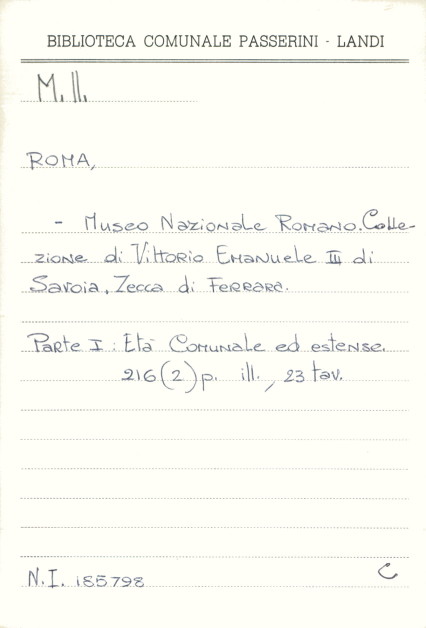 BIBLIOTECA COMUNALE PASSERINI - LANDI
M. II.
ROMA,
- Museo Nazionale Romano. Colle-
zione di Vittorio Emanuele III di
Savoia. Zecca di Ferrara.
Parte I: Età Comunale ed estense.
216(2)p. ill., 23 tav.
N.I. 185798
C